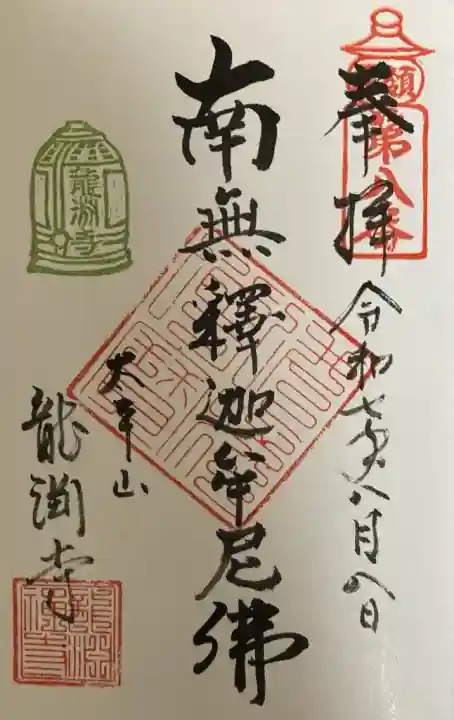 奉拝
第八番
令和七年八月八日
南無釋迦牟尼佛
太平山
龍渕寺
龍淵寺